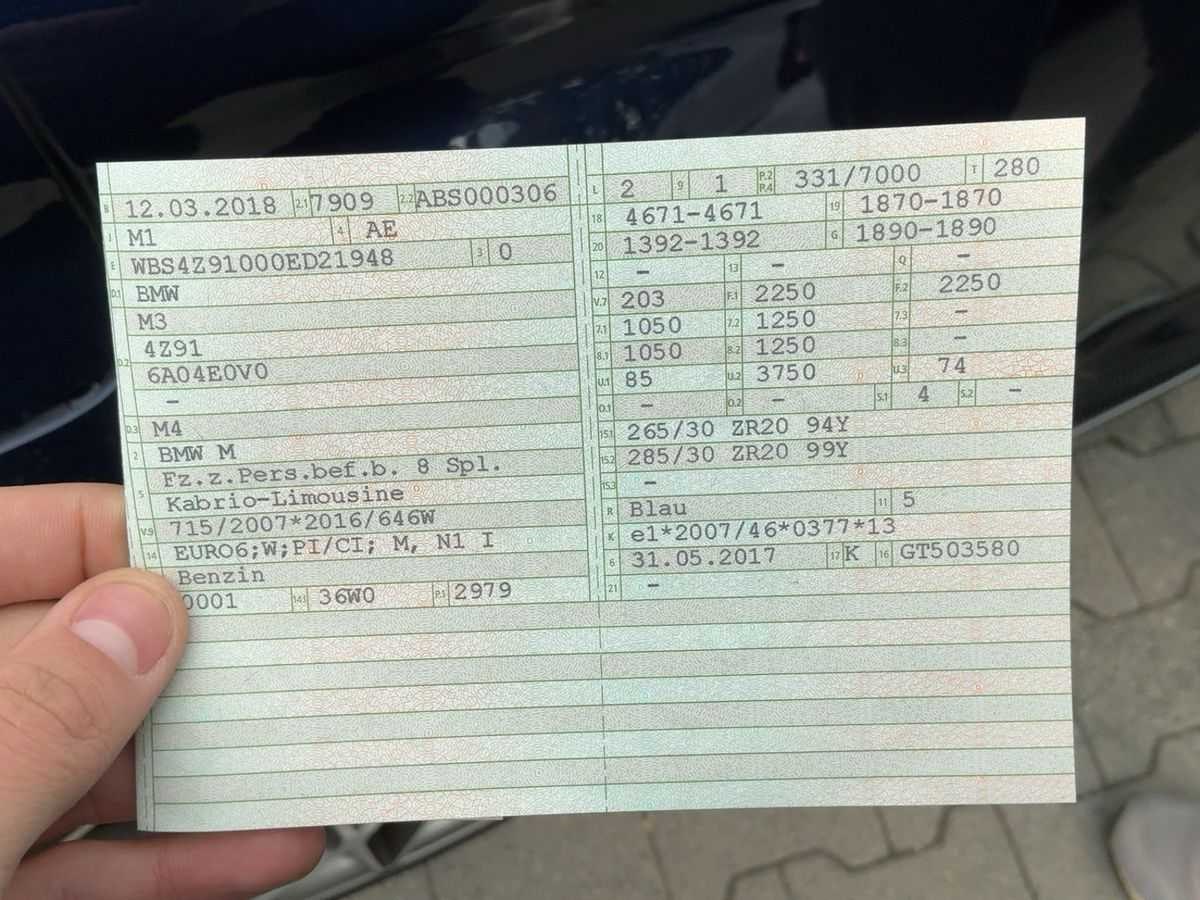 B 12.03.2018 2.1 7909 2.2 ABS000306
J M1 4 AE
E WBS4Z91000ED21948 3 0
D.1 BMW
M3
D.2 4Z91
6A04E0V0
–
D.3 M4
2 BMW M
5 Fz.z.Pers.bef.b. 8 Spl.
Kabrio-Limousine
V.9 715/2007*2016/646W
14 EURO6;W;PI/CI; M, N1 I
Benzin
0001 14.1 36W0 P.1 2979
L 2 9 1 P.2 P.4 331/7000 T 280
18 4671-4671 19 1870-1870
20 1392-1392 G 1890-1890
12 – 13 – Q –
V.7 203 F.1 2250 F.2 2250
7.1 1050 7.2 1250 7.3 –
8.1 1050 8.2 1250 8.3 –
U.1 85 U.2 3750 U.3 74
O.1 – O.2 – S.1 4 S.2 –
15.1 265/30 ZR20 94Y
15.2 285/30 ZR20 99Y
15.3 –
R Blau 11 5
K e1*2007/46*0377*13
6 31.05.2017 17 K 16 GT503580
21 –